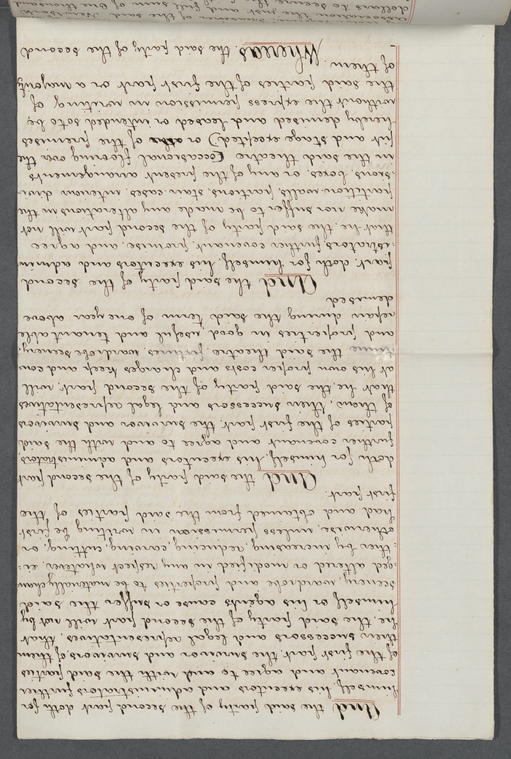 And the said party of the second part doth for
himself, his executors and administrators further
covenant and agree to and with the said parties
of the first part, the survivor and survivors of them
their successors and legal representatives, that
he the said party of the second part will not by
himself or his agents cause or suffer the said
scenery, wardrobe and properties to be materially chan
=ged altered or modified in any respect whatever, ei=
=ther by increasing, reducing, cutting, or
otherwise, unless permission in writing be first
had and obtained from the said parties of the
first part.
And the said party of the second part
doth for himself, his executors and administrators
further covenant and agree to and with the said
parties of the first part, the survivor and survivors
of them, their successors and legal representatives
that he, the said party of the second part, will
at his own proper costs and charges keep and con
the said theatre, fixtures, wardrobe scenery,
and properties in good useful and tenantable
repair during the said term of one year above
demised.
And the said party of the second
part, doth for himself, his executors and admin
=istrators further covenant, promise, and agree
that he, the said party of the second part will not
make nor suffer to be made any alterations in the
partition walls, partitions, stair cases, interior divi
=sions, boxes, or any of the present arrangements
in the said theatre (occasional flooring over the
pit and stage excepted) or of the premises
hereby demised and leased or intended so to be
without the express permission in writing of
the said parties of the first part or a majority
of them.
Whereas the said party of the second